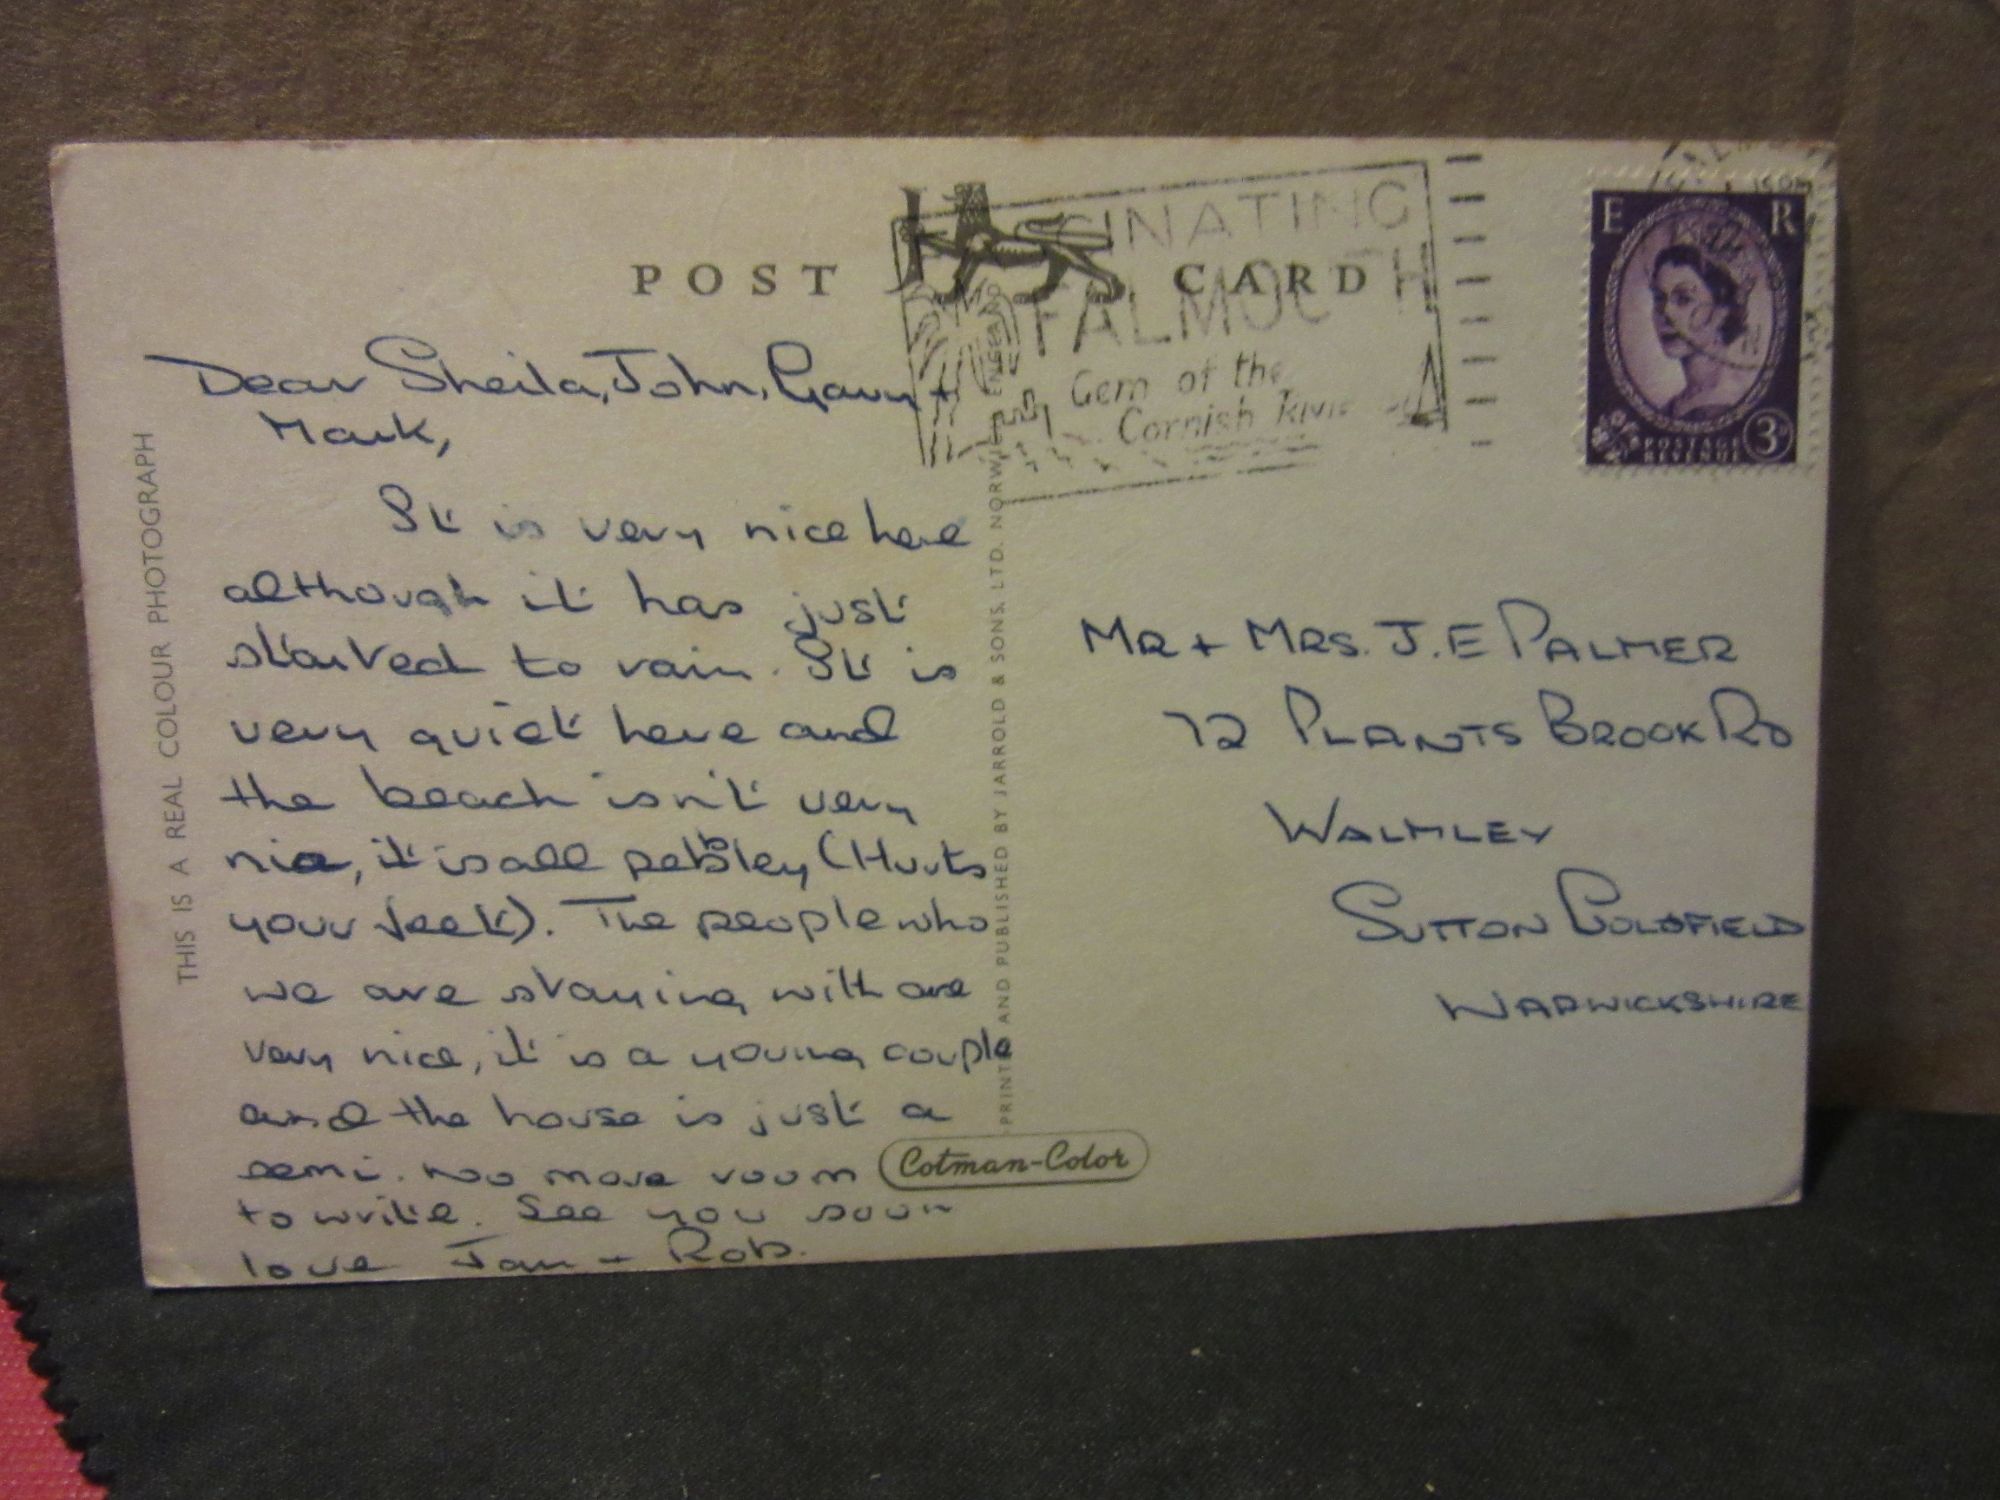 POST CARD
FASCINATING
FALMOUTH
Gem of the
Cornish
E R
POSTAGE
REVENUE
3D
THIS IS A REAL COLOUR PHOTOGRAPH
Dear Sheila, John, Gavin +
Mark,
It is very nice here
although it has just
started to rain. It is
very quiet here and
the beach isn't very
nice, it is all pebbley (Hurts
your feet). The people who
we are staying with are
very nice, it is a young couple
and the house is just a
semi. No more room
to write. See you soon
love Jan + Rob.
PRINTED AND PUBLISHED BY JARROLD & SONS. LTD. NORWICH. ENGLAND
Cotman-Color
MR + MRS. J. E PALMER
72 PLANTS BROOK RD
WALMLEY
SUTTON COLDFIELD
WARWICKSHIRE